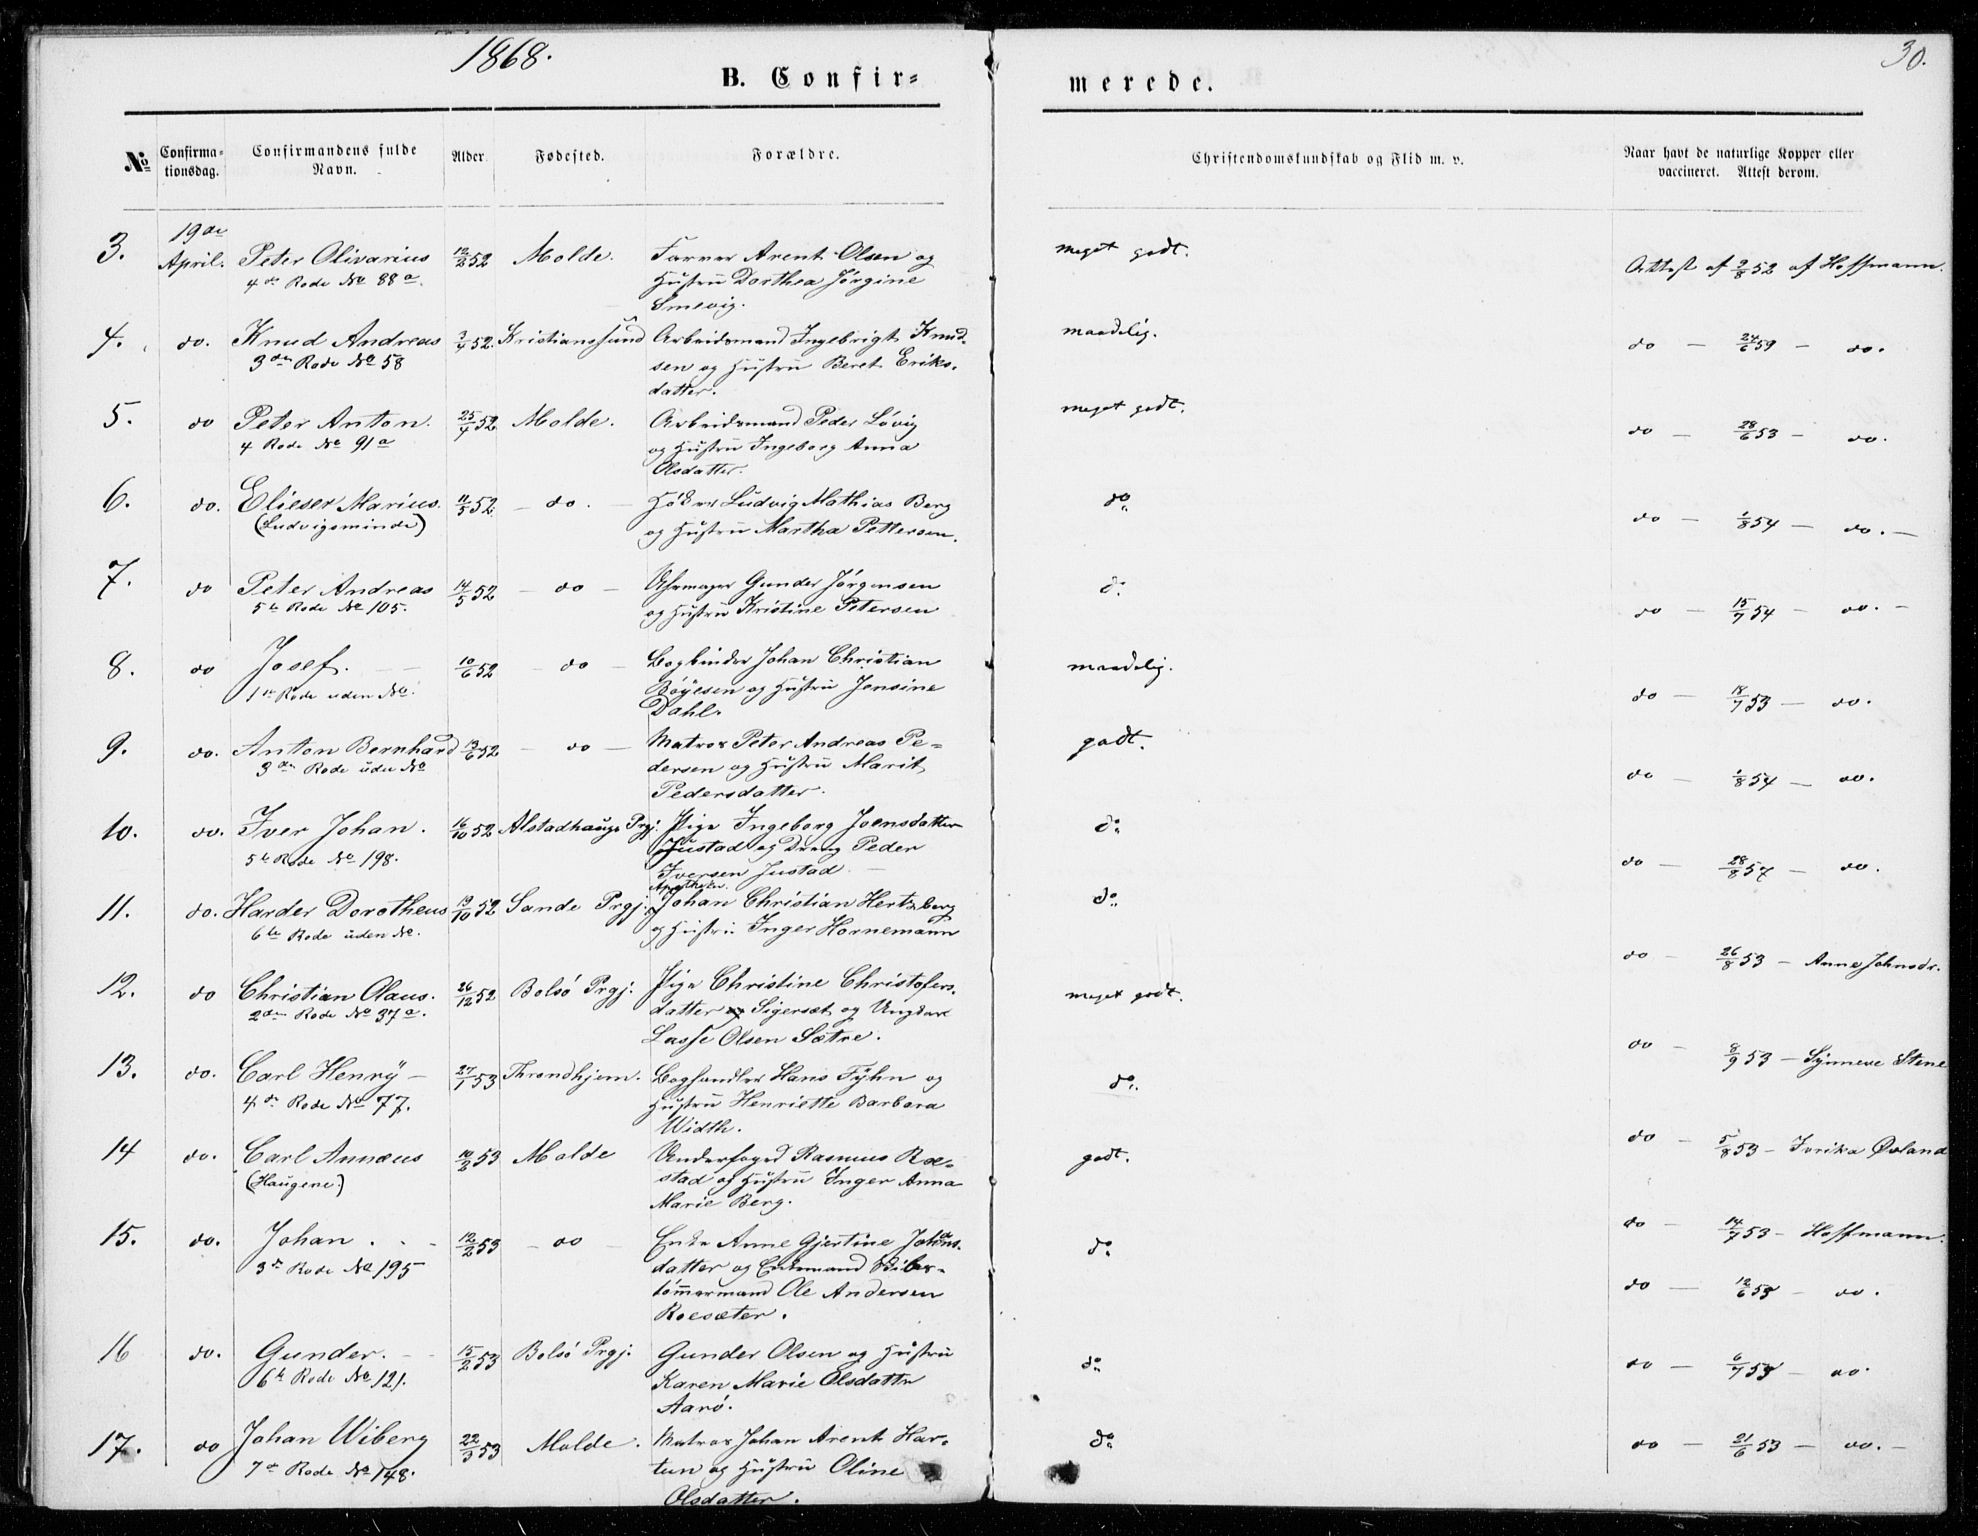 1868.
30.
B. Confir=
merede.
No
Confirma-
tionsdag.
Confirmandens fulde
Navn.
Alder.
Fødested.
Forældre.
Christendomskundskab og Flid m. v.
Naar havt de naturlige Kopper eller
vaccineret. Attest derom.
3. 19de April. Peter Olivarius 12/2 52 Molde. Farver Arent Olsen og meget godt. Attest af 9/8 52 af Hoffmann.
4de Rode No 88a. Hustru Dorthea Jørgine
Smevig.
4. do. Knud Andreas 3/4 52. Kristianssund Arbeidsmand Ingebrigt Knud- maadelig. do — 24/6 59 — do.
3de Rode No 58 sen og Hustru Beret Eriks-
datter.
5. do Peter Anton. 25/4 52 Molde. Arbeidsmand Peder Løvig meget godt. do — 28/6 53 — do.
4 Rode No 91a og Hustru Ingeborg Anna
Olsdatter.
6. do. Elieser Marius. 11/5 52 — do. — Høker Ludvig Mathias Berg do do — 1/8 54 — do. —
(Ludvigsminde) og Hustru Martha Pettersen.
7. do Peter Andreas 14/5 52 — do — Uhrmager Gunder Jørgensen do do — 15/7 54 — do. —
5te Rode No 105. og Hustru Kristine Petersen
8. do Josef. 10/6 52 — do — Bogbinder Johan Christian maadelig. do — 18/7 53 — do.
1ste Rode uden No. Bøyesen og Hustru Jensine
Dahl.
9. do. Anton Bernhard 13/6 52 — do — Matros Peter Andreas Pe- godt. do — 1/8 54 — do.
3de Rode uden No dersen og Hustru Marit
Pedersdatter.
10. do. Iver Johan. 16/10 52 Alstadhaugs Prgj. Pige Ingeborg Joensdatter do do — 28/8 57 — do.
5te Rode No 198. Justad og Dreng Peder
Iversen Justad —
11. do. Harder Dorotheus 19/10 52 Sande Prgj. Johan Christian Hertzberg do do — 26/8 53 — Anne Johnsdr.
6te Rode uden No. og Hustru Inger Hornemann
12. do Christian Olaus. 26/12 52 Bolsø Prgj. Pige Christine Christofers- meget godt. do — 8/9 53 — Synneve Stene
2den Rode No 37a. datter Sigerset og Ungkarl
Lasse Olsen Sætre.
13. do. Carl Henry — 27/1 53 Throndhjem. Boghandler Hans Fyhn og do. do — 5/8 53 —
4de Rode No 77. Hustru Henriette Barbara
Width.
14 do. Carl Annæus 10/2 53 Molde Underfoged Rasmus Roe- godt. do — 14/7 53 — Hoffmann.
(Haugene.) stad og Hustru Inger Anna
Marie Berg.
15. do. Johan . 12/2 53 — do — Enke Anne Gjertine Johans- do do — 12/6 53 — do.
3de Rode No 195 datter og Enkemand Skibs-
tømmermand Ole Andersen
Roesæter.
16 do. Gunder. 15/2 53 Bolsø Prgj. Gunder Olsen og Hustru do do — 6/7 53 — do.
6te Rode No 121. Karen Marie Olsdatter
Aarø.
17. do Johan Wiberg 22/3 53 Molde. Matros Johan Arent Har- do do — 21/6 53 — do. —
7de Rode No 148. tun og Hustru Oline
Olsdatter.